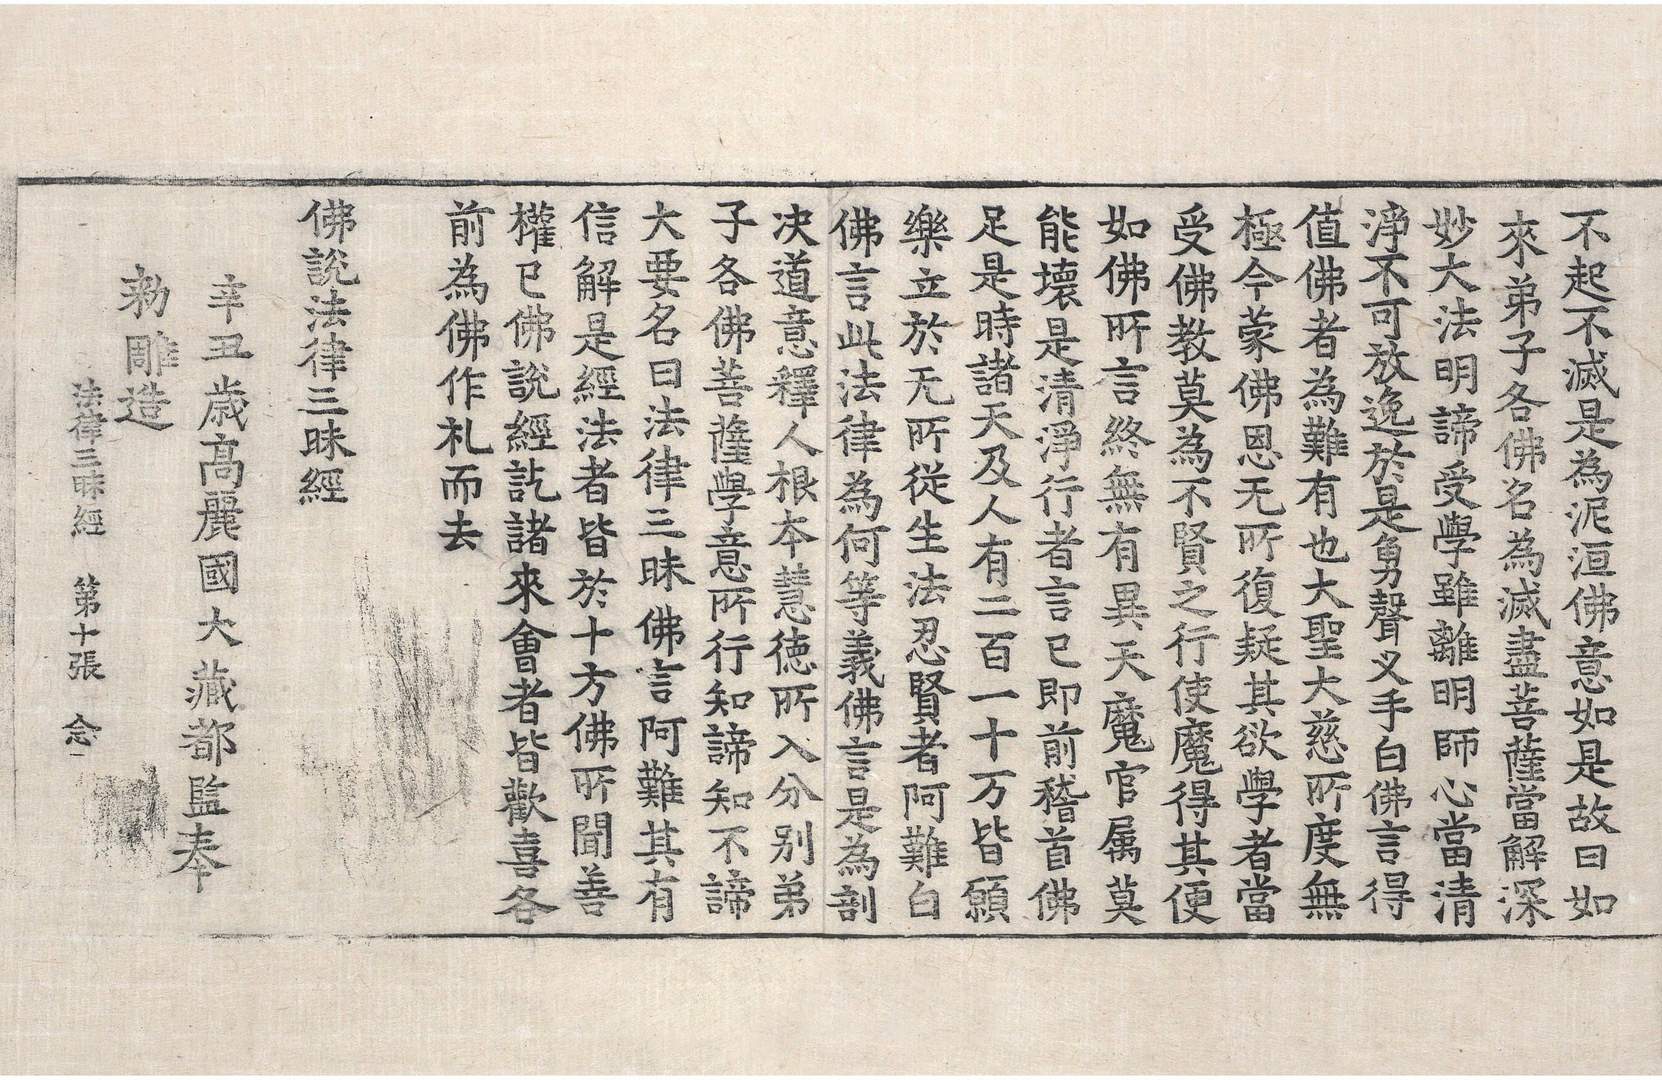 不起不滅是為泥洹佛意如是故曰如
來弟子各佛名為滅盡菩薩當解深
妙大法明諦受學雖離明師心當清
淨不可放逸於是勇聲叉手白佛言得
值佛者為難有也大聖大慈所度無
極今蒙佛恩无所復疑其欲學者當
受佛教莫為不賢之行使魔得其便
如佛所言終無有異天魔官属莫
能壞是清淨行者言已即前稽首佛
足是時諸天及人有二百一十万皆願
樂立於无所從生法忍賢者阿難白
佛言此法律為何等義佛言是為剖
决道意釋人根本慧徳所入分别弟
子各佛菩薩學意所行知諦知不諦
大要名曰法律三昧佛言阿難其有
信解是經法者皆於十方佛所聞善
權已佛說經訖諸來會者皆歡喜各
前為佛作礼而去
佛說法律三昧經
辛丑歳高麗國大藏都監奉
勑雕造
法律三昧經 第十張 念